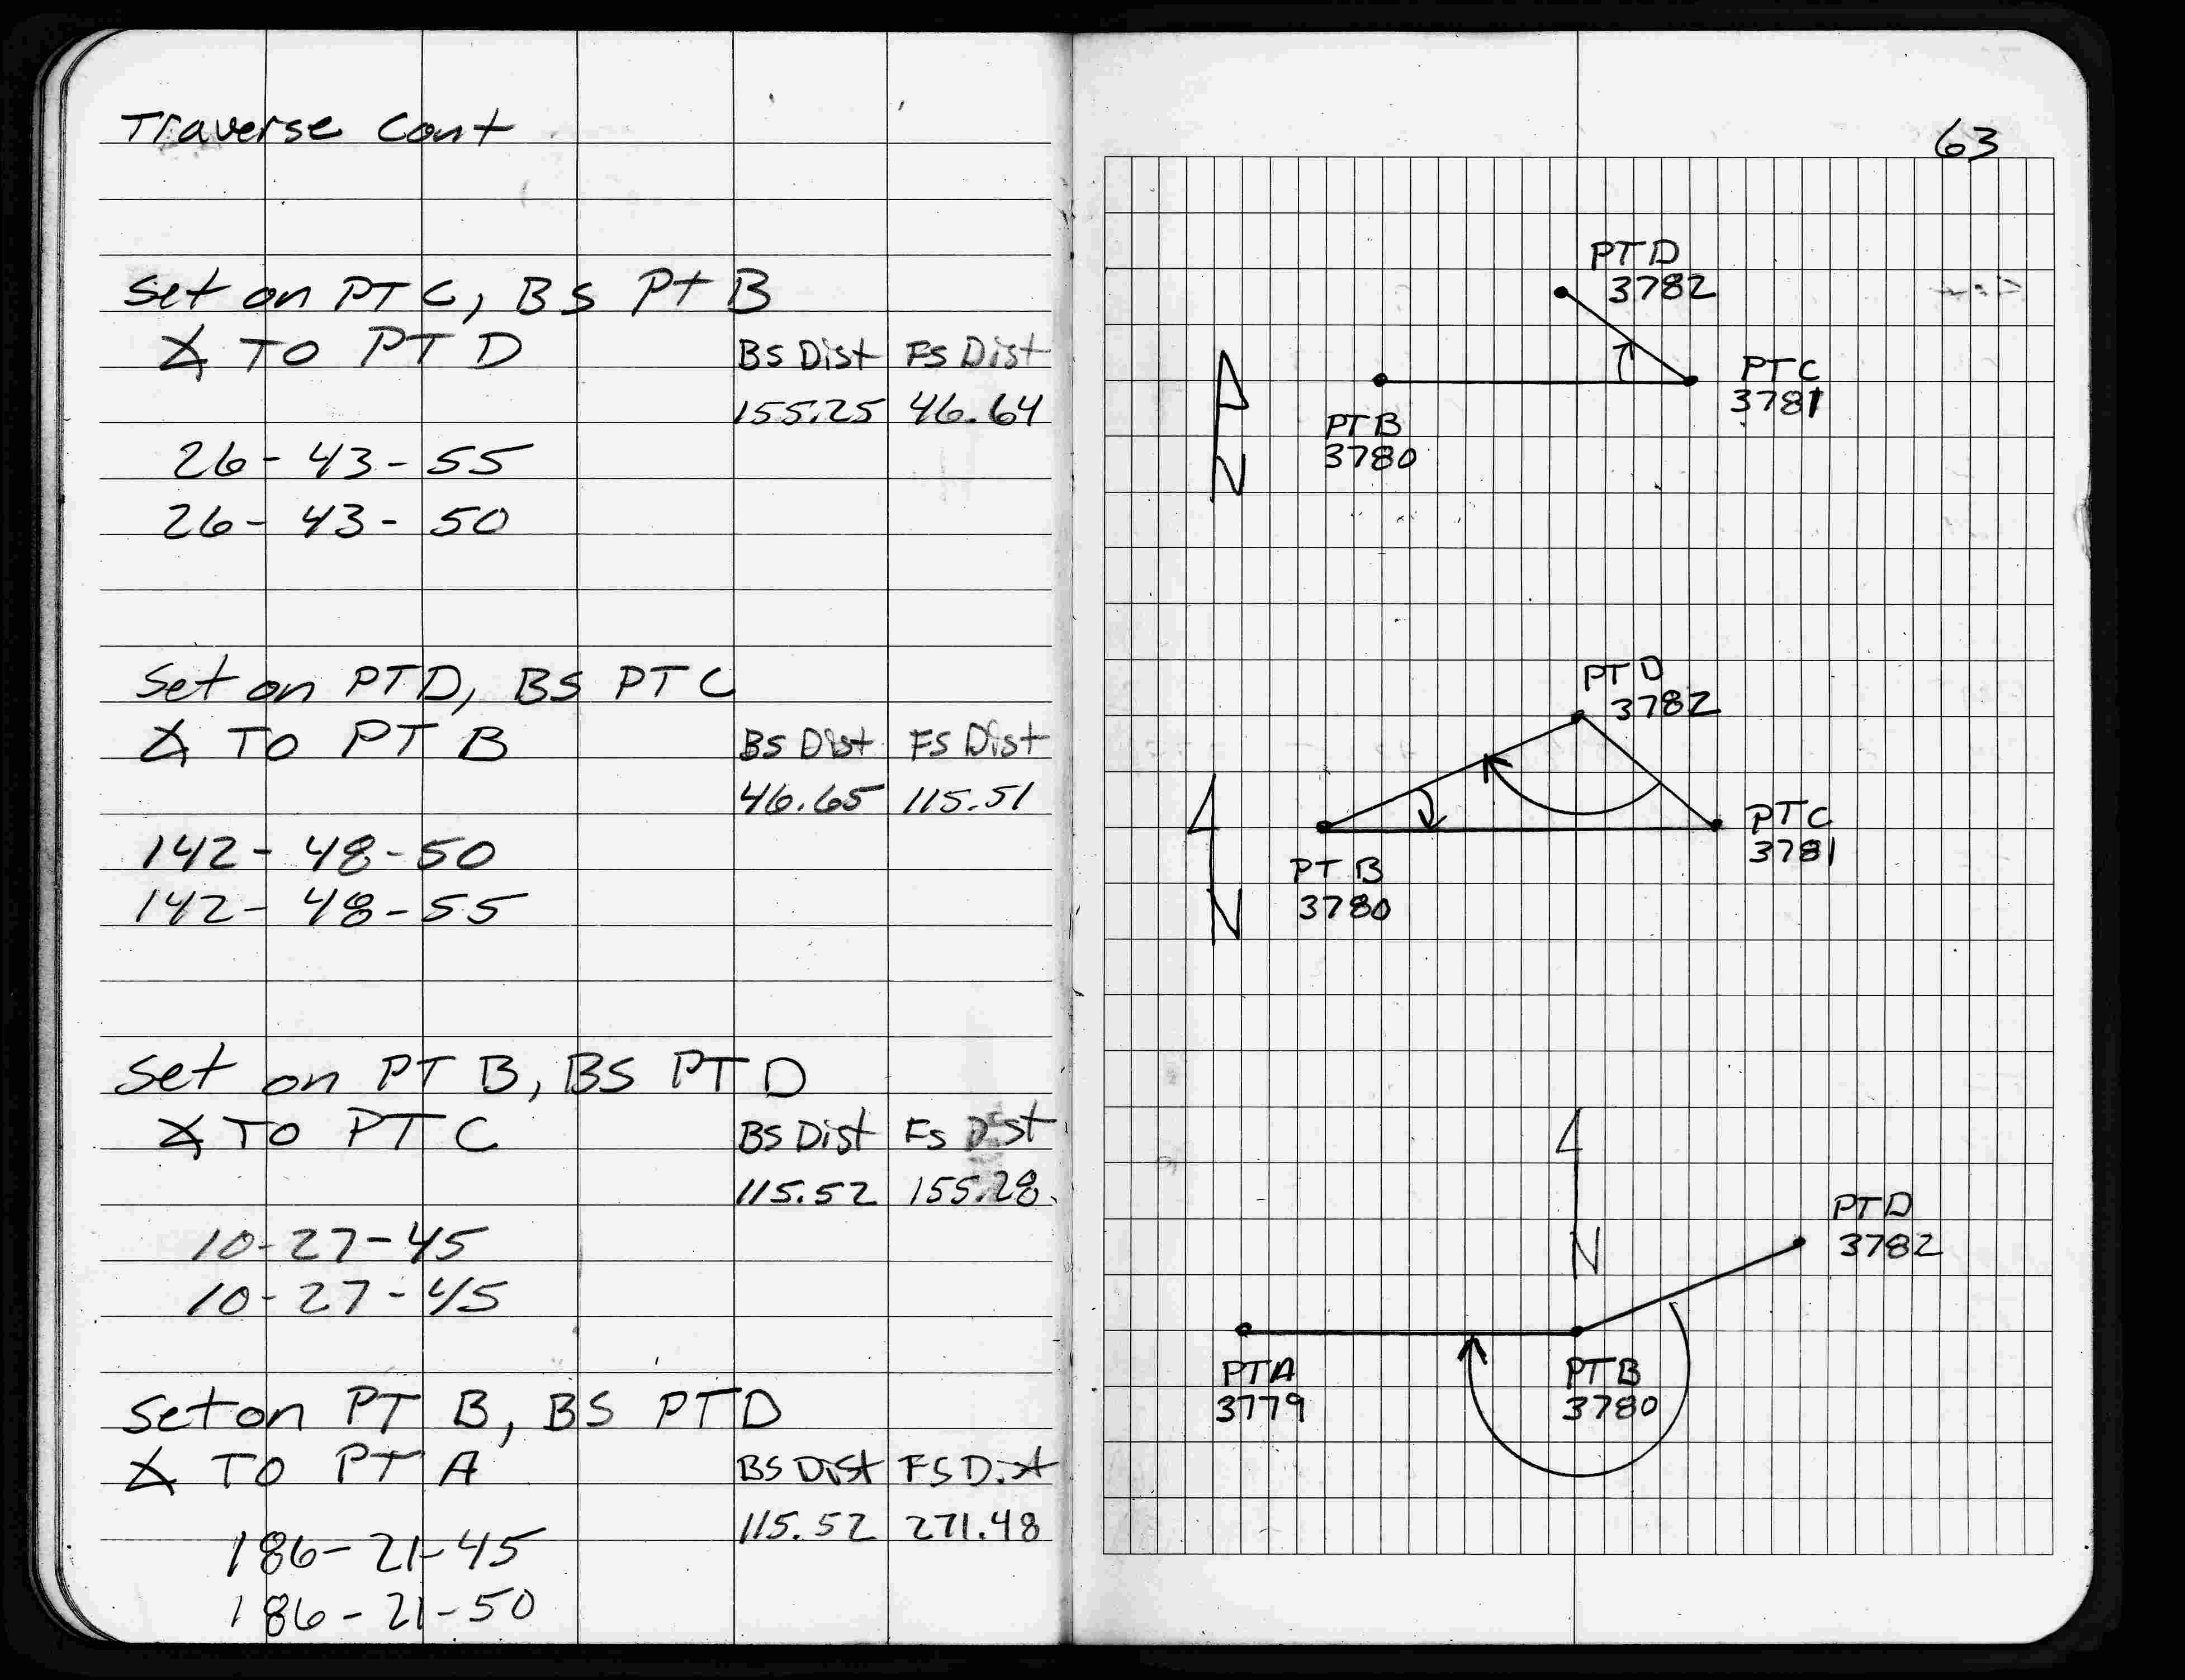 Traverse Cont
Set on PT C, BS Pt B
∡ TO PT D
BS Dist FS Dist
155.25 46.64
26-43-55
26-43-50
Set on PTD, BS PTC
∡ TO PT B
BS Dist FS Dist
46.65 115.51
142-48-50
142-48-55
Set on PT B, BS PTD
∡ TO PT C
BS Dist FS Dist
115.52 155.28
10-27-45
10-27-45
Set on PT B, BS PTD
∡ TO PT A
BS Dist FS Dist
115.52 271.48
186-21-45
186-21-50
63
PTD
3782
PTC
3781
PTB
3780
N
PTD
3782
PTC
3781
PT B
3780
N
N
PTD
3782
PTA
3779
PTB
3780